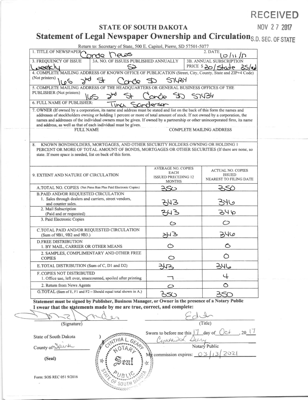 RECEIVED
NOV 27 2017
S.D. SEC. OF STATE
STATE OF SOUTH DAKOTA
Statement of Legal Newspaper Ownership and Circulation
Return to: Secretary of State, 500 E. Capitol, Pierre, SD 57501-5077
1. TITLE OF NEWSPAPER Conde News
2. DATE 10/11/17
3. FREQUENCY OF ISSUE weekly
3A. NO. OF ISSUES PUBLISHED ANNUALLY 52
3B. ANNUAL SUBSCRIPTION PRICE
4. COMPLETE MAILING ADDRESS OF KNOWN OFFICE OF PUBLICATION (Street, City, County, State and ZIP+4 Code)
(Not printers)
5. COMPLETE MAILING ADDRESS OF THE HEADQUARTERS OR GENERAL BUSINESS OFFICES OF THE
PUBLISHER (Not printers)
6. FULL NAME OF PUBLISHER: Tina Sanderson
7. OWNER (If owned by a corporation, its name and address must be stated and also on the back of this form the names and
addresses of stockholders owning or holding 1 percent or more of total amount of stock. If not owned by a corporation, the
names and addresses of the individual owners must be given. If owned by a partnership or other unincorporated firm, its name
and address, as well as that of each individual must be given.
FULL NAME COMPLETE MAILING ADDRESS
8. KNOWN BONDHOLDERS, MORTGAGEES, AND OTHER SECURITY HOLDERS OWNING OR HOLDING 1
PERCENT OR MORE OF TOTAL AMOUNT OF BONDS, MORTGAGES OR OTHER SECURITIES (If there are none, so
state. If more space is needed, list on back of this form.
9. EXTENT AND NATURE OF CIRCULATION
AVERAGE NO. COPIES EACH ISSUED PRECEDING 12 MONTHS
ACTUAL NO. COPIES ISSUED NEAREST TO FILING DATE
A. TOTAL NO. COPIES 350 350
B. PAID AND/OR REQUESTED CIRCULATION
1. Sales through dealers and carriers, street vendors,
and counter sales. 343 346
2. Mail Subscription
(Paid and or requested) 343 346
3. Paid Electronic Copies 0 0
C. TOTAL PAID AND/OR REQUESTED CIRCULATION
(Sum of 9B1, 9B2 and 9B3) 343 346
D. FREE DISTRIBUTION
1. BY MAIL, CARRIER OR OTHER MEANS 0 0
2. SAMPLES, COMPLIMENTARY AND OTHER FREE
COPIES 0 0
E. TOTAL DISTRIBUTION (Sum of C, D1 and D2) 343 346
F. COPIES NOT DISTRIBUTED
1. Office use, left over, unaccounted, spoiled after printing 7 4
2. Return from News Agents 0 0
G. TOTAL (Sum of E, F1 and F2 - Should equal total shown in A) 350 350
Statement must be signed by Publisher, Business Manager, or Owner in the presence of a Notary Public
I swear that the statements made by me are true, correct, and complete:
(Signature) (Title)
State of South Dakota
County of
(Seal)
Sworn to before me this 17 day of Oct, 2017
Notary Public
My commission expires: 03/13/2021
CYNTHIA L. BERRY
NOTARY
Seal
PUBLIC
STATE OF SOUTH DAKOTA
Form: SOS REC 051 9/2016